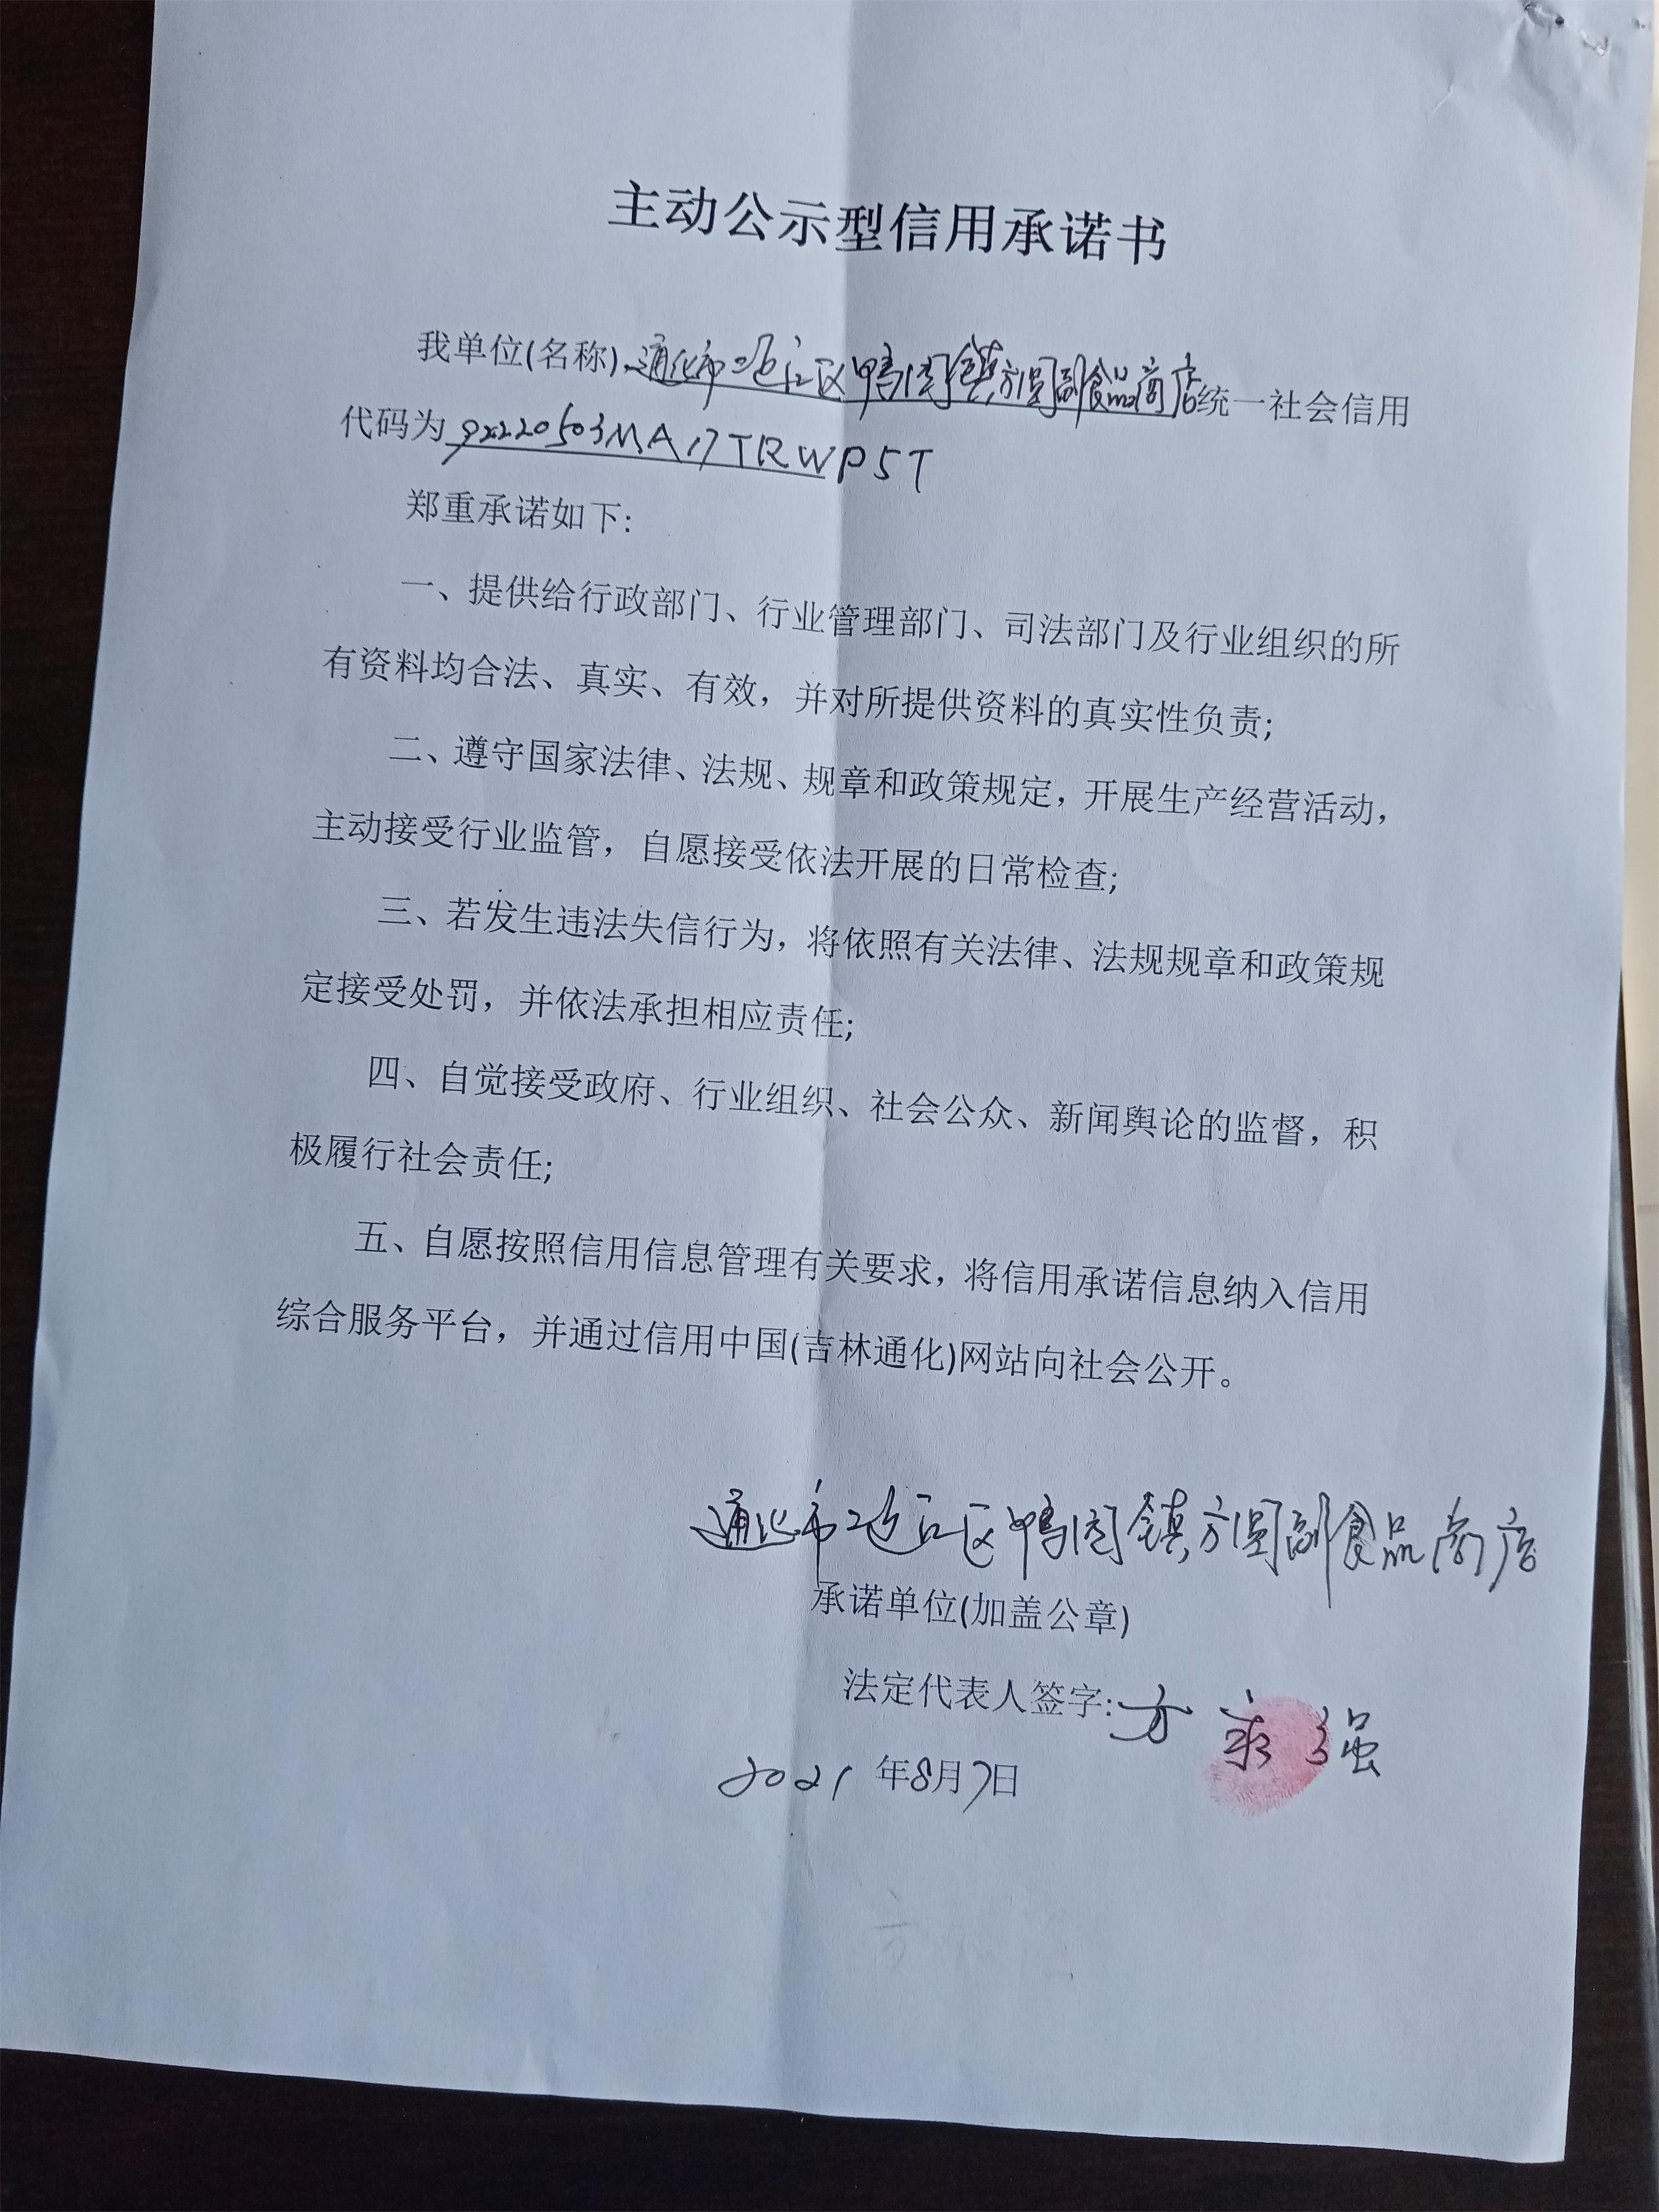 主动公示型信用承诺书
我单位(名称)通化市二道江区鸭园镇方圆副食品商店统一社会信用
代码为92220503MA17TRWP5T
郑重承诺如下:
一、提供给行政部门、行业管理部门、司法部门及行业组织的所
有资料均合法、真实、有效，并对所提供资料的真实性负责;
二、遵守国家法律、法规、规章和政策规定，开展生产经营活动，
主动接受行业监管，自愿接受依法开展的日常检查;
三、若发生违法失信行为，将依照有关法律、法规规章和政策规
定接受处罚，并依法承担相应责任;
四、自觉接受政府、行业组织、社会公众、新闻舆论的监督，积
极履行社会责任;
五、自愿按照信用信息管理有关要求，将信用承诺信息纳入信用
综合服务平台，并通过信用中国(吉林通化)网站向社会公开。
通化市二道江区鸭园镇方圆副食品商店
承诺单位(加盖公章)
法定代表人签字:方 强
2021年8月7日